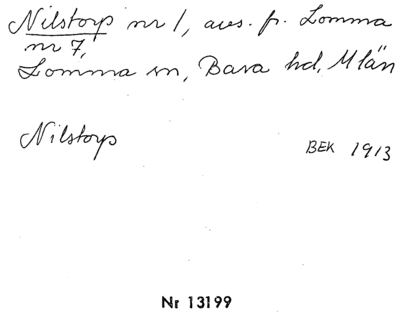 Nilstorp nr 1, avs. fr. Lomma
nr 7,
Lomma sn, Bara hd, M län
Nilstorp
BEK 1913
Nr 13199